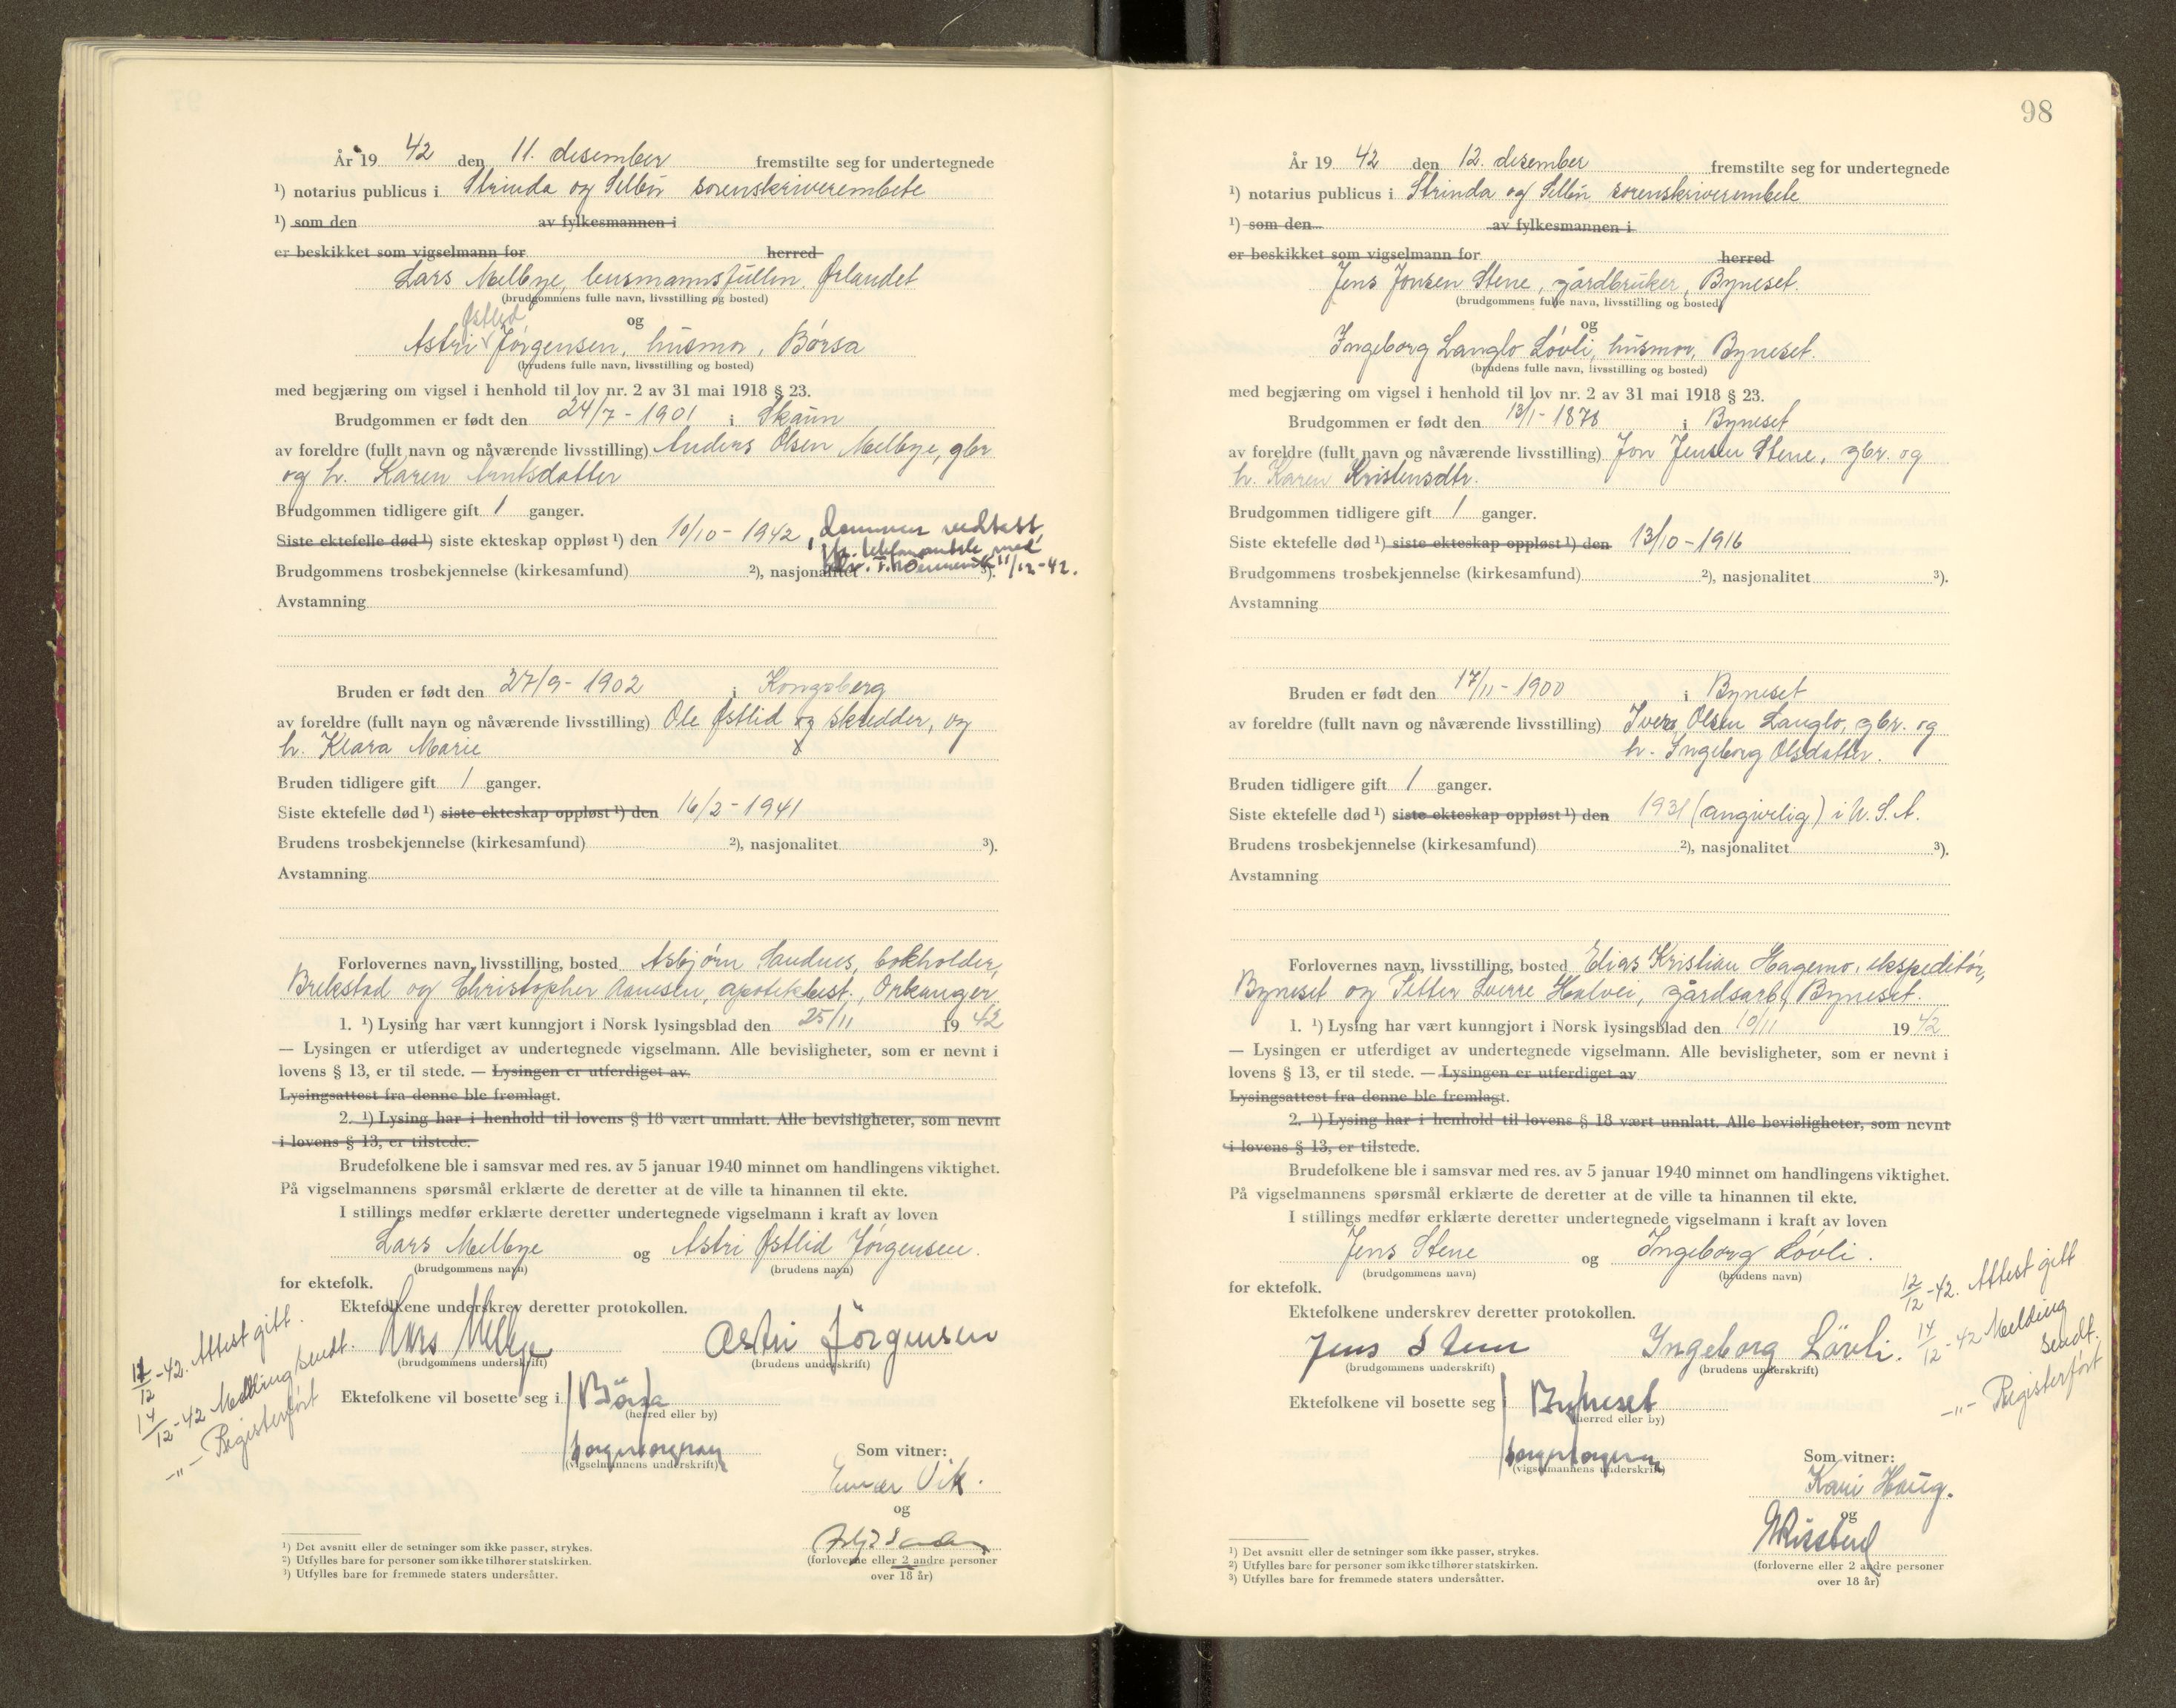 År 19 42 den 11. desember fremstilte seg for undertegnede
¹) notarius publicus i Strinda og Selbu sorenskriverembete
¹) som den av fylkesmannen i
er beskikket som vigselmann for herred
Lars Melbye, lensmannsfullm. Ørlandet
(brudgommens fulle navn, livsstilling og bosted)
og
Østlid
Astri Jørgensen, husmor, Børsa
(brudens fulle navn, livsstilling og bosted)
med begjæring om vigsel i henhold til lov nr. 2 av 31 mai 1918 § 23.
Brudgommen er født den 24/7 - 1901 i Skaun
av foreldre (fullt navn og nåværende livsstilling) Anders Olsen Melbye, gbr
og h. Karen Arntsdatter
Brudgommen tidligere gift 1 ganger.
Siste ektefelle død ¹) siste ekteskap oppløst ¹) den 10/10 - 1942, dommen vedtatt
Brudgommens trosbekjennelse (kirkesamfund) ²), nasjonalitet ³). 11/12-42.
Avstamning
Bruden er født den 27/9 - 1902 i Kongsberg
av foreldre (fullt navn og nåværende livsstilling) Ole Østlid og skredder, og
h. Klara Marie
Bruden tidligere gift 1 ganger.
Siste ektefelle død ¹) siste ekteskap oppløst ¹) den 16/2 - 1941
Brudens trosbekjennelse (kirkesamfund) ²), nasjonalitet ³).
Avstamning
Forlovernes navn, livsstilling, bosted Asbjørn Sandnes, bokholder,
Brekstad og Christopher Aanesen, apotekbest., Orkanger
1. ¹) Lysing har vært kunngjort i Norsk lysingsblad den 25/11 1942
— Lysingen er utferdiget av undertegnede vigselmann. Alle bevisligheter, som er nevnt i
lovens § 13, er til stede. — Lysingen er utferdiget av
Lysingsattest fra denne ble fremlagt.
2. ¹) Lysing har i henhold til lovens § 18 vært unnlatt. Alle bevisligheter, som nevnt
i lovens § 13, er tilstede.
Brudefolkene ble i samsvar med res. av 5 januar 1940 minnet om handlingens viktighet.
På vigselmannens spørsmål erklærte de deretter at de ville ta hinannen til ekte.
I stillings medfør erklærte deretter undertegnede vigselmann i kraft av loven
Lars Melbye og Astri Østlid Jørgensen.
(brudgommens navn) (brudens navn)
for ektefolk.
Ektefolkene underskrev deretter protokollen.
Lars Melbye Astri Jörgensen
(brudgommens underskrift) (brudens underskrift)
Ektefolkene vil bosette seg i Börsa
(herred eller by)
(vigselmannens underskrift)
Som vitner:
Einar Vik.
og
(forloverne eller 2 andre personer
over 18 år)
11/12 -42. Attest gitt.
14/12 -42 Melding sendt.
-"- Registerført
¹) Det avsnitt eller de setninger som ikke passer, strykes.
²) Utfylles bare for personer som ikke tilhører statskirken.
³) Utfylles bare for fremmede staters undersåtter.
98
År 19 42 den 12. desember fremstilte seg for undertegnede
¹) notarius publicus i Strinda og Selbu sorenskriverembete
¹) som den av fylkesmannen i
er beskikket som vigselmann for herred
Jens Jonsen Stene, gårdbruker, Byneset.
(brudgommens fulle navn, livsstilling og bosted)
og
Ingeborg Langlo Løvli, husmor, Byneset.
(brudens fulle navn, livsstilling og bosted)
med begjæring om vigsel i henhold til lov nr. 2 av 31 mai 1918 § 23.
Brudgommen er født den 13/1 - 1878 i Byneset
av foreldre (fullt navn og nåværende livsstilling) Jon Jensen Stene, gbr. og
h. Karen Kristensdtr.
Brudgommen tidligere gift 1 ganger.
Siste ektefelle død ¹) siste ekteskap oppløst ¹) den 13/10 - 1916
Brudgommens trosbekjennelse (kirkesamfund) ²), nasjonalitet ³).
Avstamning
Bruden er født den 17/11 - 1900 i Byneset
av foreldre (fullt navn og nåværende livsstilling) Iver Olsen Langlo, gbr. og
h. Ingeborg Olsdatter.
Bruden tidligere gift 1 ganger.
Siste ektefelle død ¹) siste ekteskap oppløst ¹) den 1931 (angivelig) i U.S.A.
Brudens trosbekjennelse (kirkesamfund) ²), nasjonalitet ³).
Avstamning
Forlovernes navn, livsstilling, bosted Elias Kristian Hagemo, ekspeditør,
Byneset og Petter Sverre Halvei, gårdsarb., Byneset.
1. ¹) Lysing har vært kunngjort i Norsk lysingsblad den 10/11 1942
— Lysingen er utferdiget av undertegnede vigselmann. Alle bevisligheter, som er nevnt i
lovens § 13, er til stede. — Lysingen er utferdiget av
Lysingsattest fra denne ble fremlagt.
2. ¹) Lysing har i henhold til lovens § 18 vært unnlatt. Alle bevisligheter, som nevnt
i lovens § 13, er tilstede.
Brudefolkene ble i samsvar med res. av 5 januar 1940 minnet om handlingens viktighet.
På vigselmannens spørsmål erklærte de deretter at de ville ta hinannen til ekte.
I stillings medfør erklærte deretter undertegnede vigselmann i kraft av loven
Jens Stene og Ingeborg Løvli.
(brudgommens navn) (brudens navn)
for ektefolk.
Ektefolkene underskrev deretter protokollen.
Jens Stene Ingeborg Lövli.
(brudgommens underskrift) (brudens underskrift)
Ektefolkene vil bosette seg i Byneset
(herred eller by)
(vigselmannens underskrift)
Som vitner:
Kari Haug.
og
(forloverne eller 2 andre personer
over 18 år)
12/12 -42. Attest gitt
14/12 -42 Melding
sendt.
-"- Registerført
¹) Det avsnitt eller de setninger som ikke passer, strykes.
²) Utfylles bare for personer som ikke tilhører statskirken.
³) Utfylles bare for fremmede staters undersåtter.